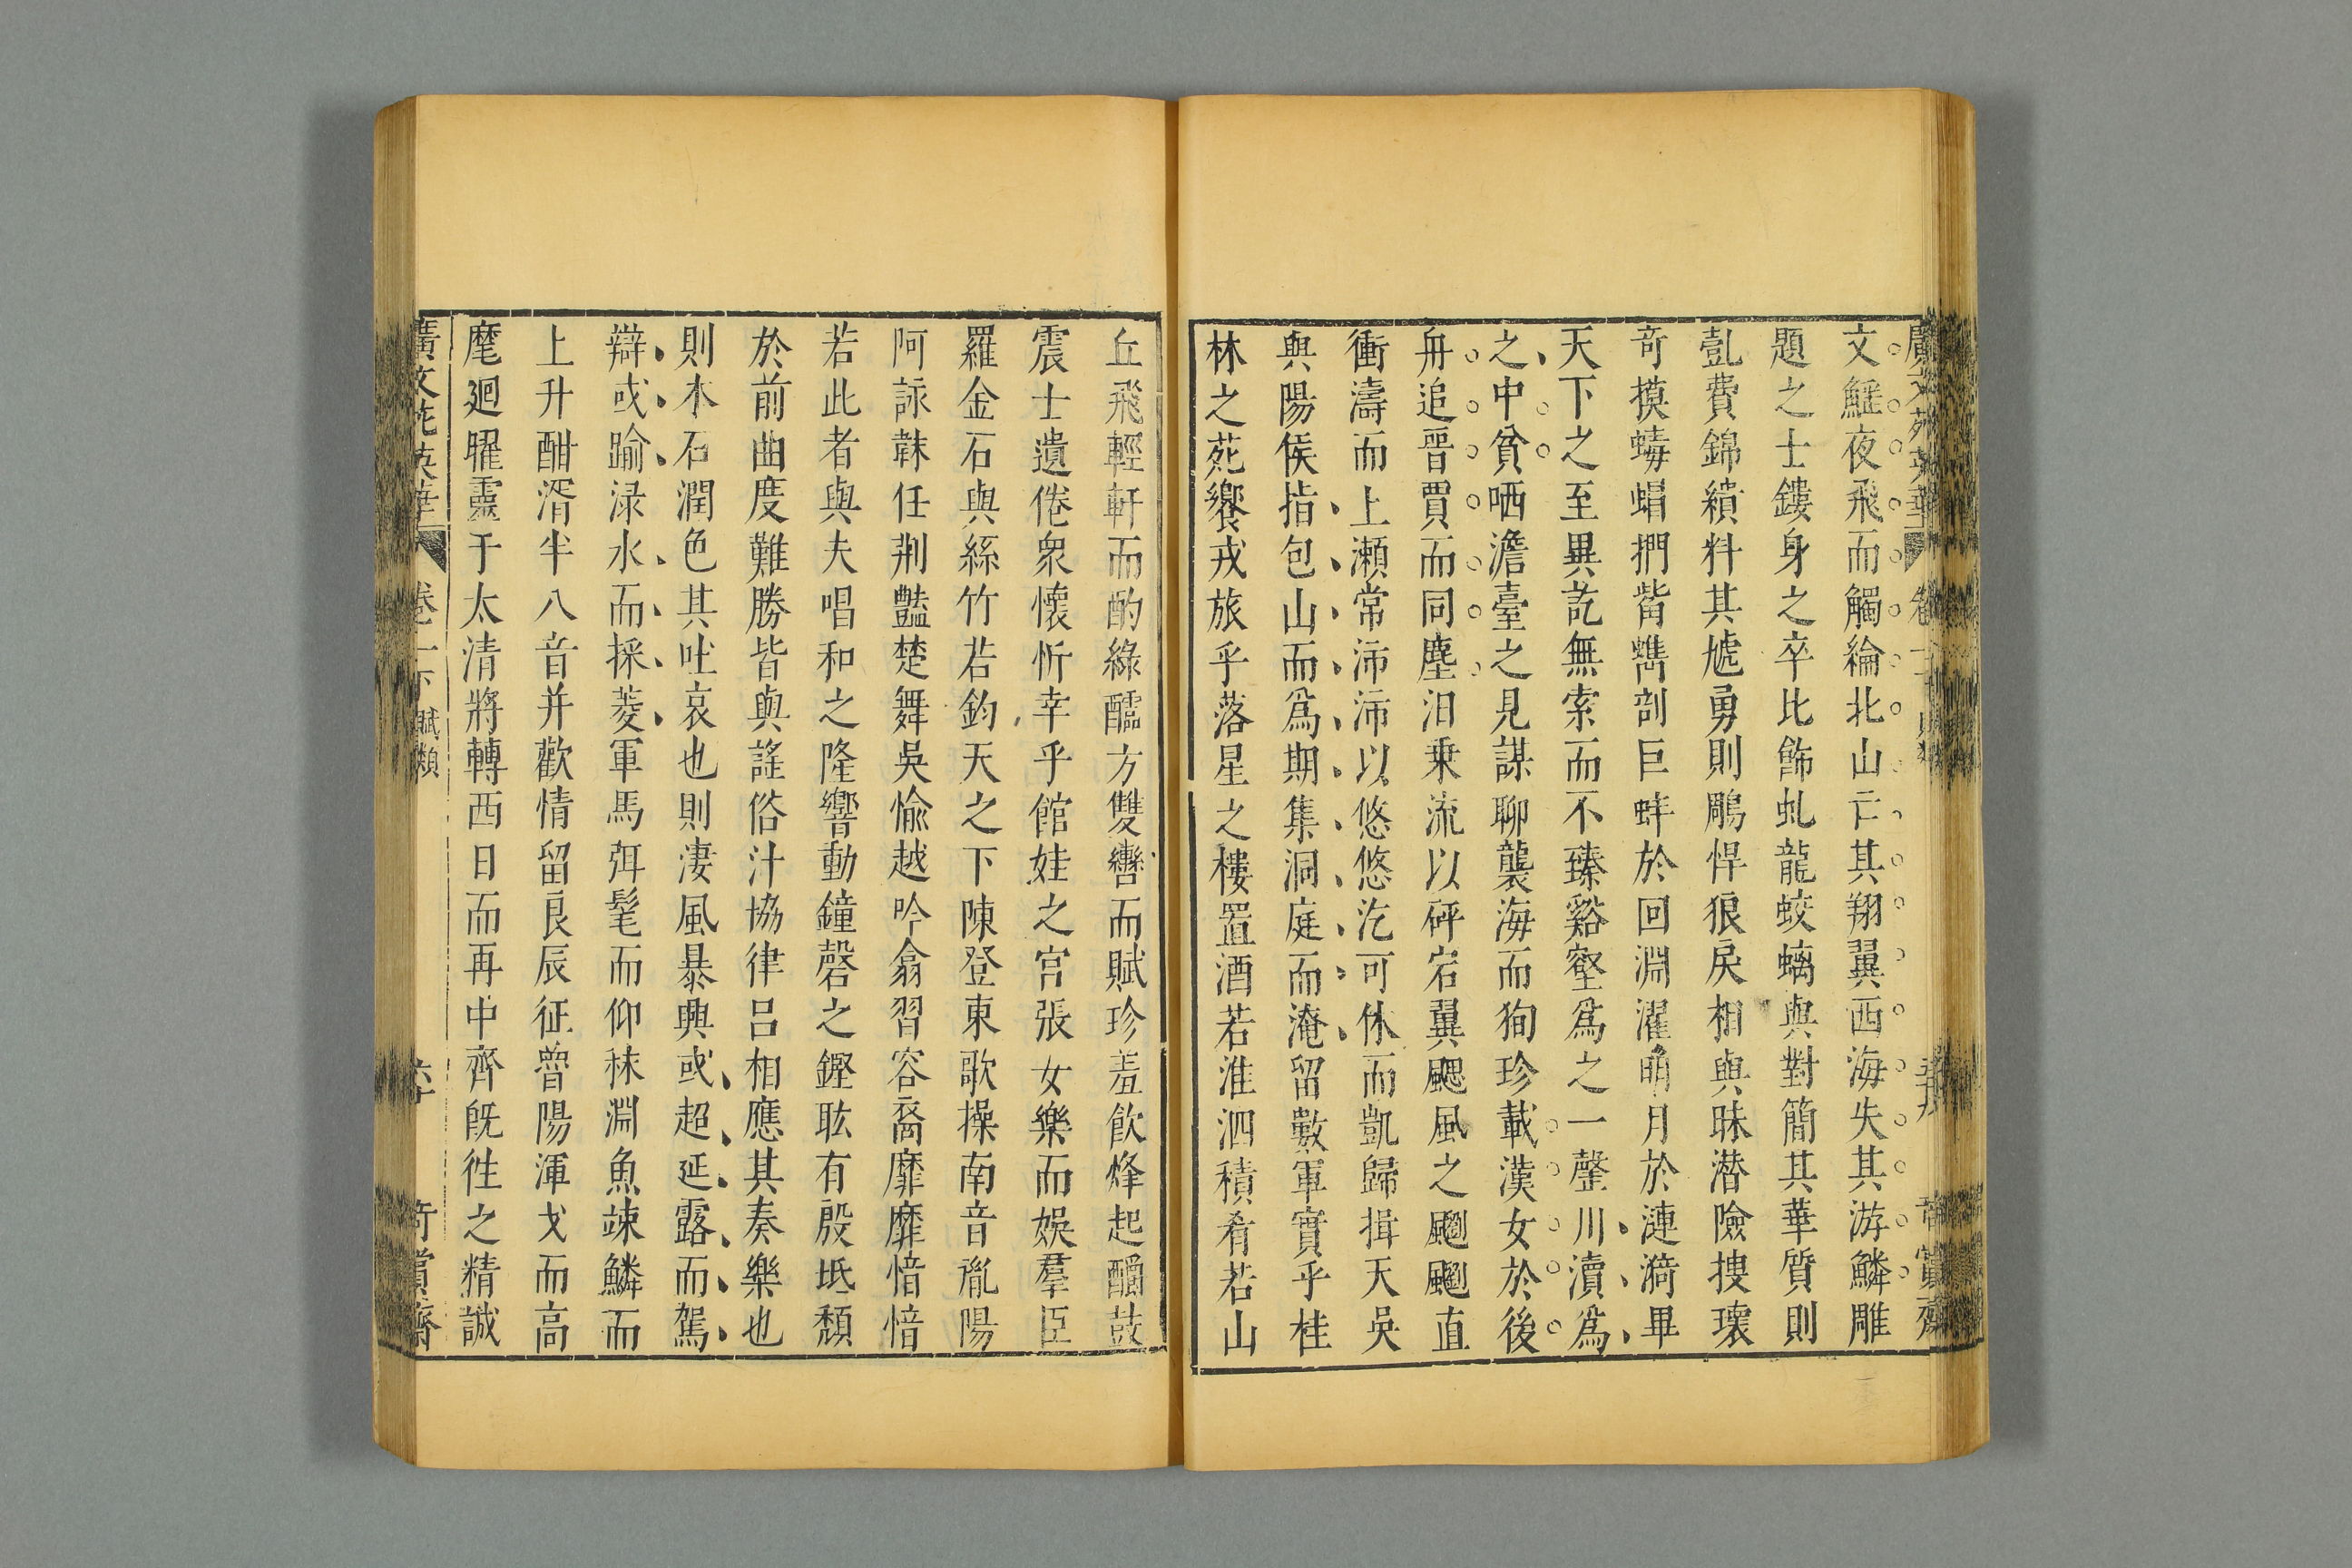 廣文苑英華
文鰩夜飛而觸綸北山亡其翔翼西海失其游鱗雕
題之士鏤身之卒比飾虬龍蛟螭與對簡其華質則
亄費錦繢料其虓勇則鵰悍狼戾相與昧潜險搜瓌
奇摸蝳蝐捫觜蠵剖巨蚌於回淵濯明月於漣漪畢
天下之至異訖無索而不臻谿壑爲之一罄川瀆爲
之中貧哂澹臺之見謀聊襲海而狥珍載漢女於後
舟追晉賈而同塵汩乗流以砰宕翼颸風之䬙䬙直
衝濤而上瀬常沛沛以悠悠汔可休而凱歸揖天吳
與陽侯指包山而爲期集洞庭而淹留數軍實乎桂
林之苑饗戎旅乎落星之樓置酒若淮泗積肴若山
丘飛輕軒而酌綠醽方雙轡而賦珍羞飲烽起釂鼓
震士遺倦衆懷忻幸乎館娃之宫張女樂而娱羣臣
羅金石與絲竹若鈞天之下陳登東歌操南音胤陽
阿詠韎任荆豔楚舞吳愉越吟翕習容裔靡靡愔愔
若此者與夫唱和之隆響動鐘磬之鏗耾有殷坻頽
於前曲度難勝皆與謠俗汁協律呂相應其奏樂也
則木石潤色其吐哀也則淒風暴興或超延露而駕
辯或踰渌水而採菱軍馬弭髦而仰秣淵魚竦鱗而
上升酣湑半八音并歡情留良辰征魯陽渾戈而高
麾廻曜靈于太清將轉西日而再中齊旣徃之精誠
廣文苑英華 卷一下 賦類 六十 奇賞齋